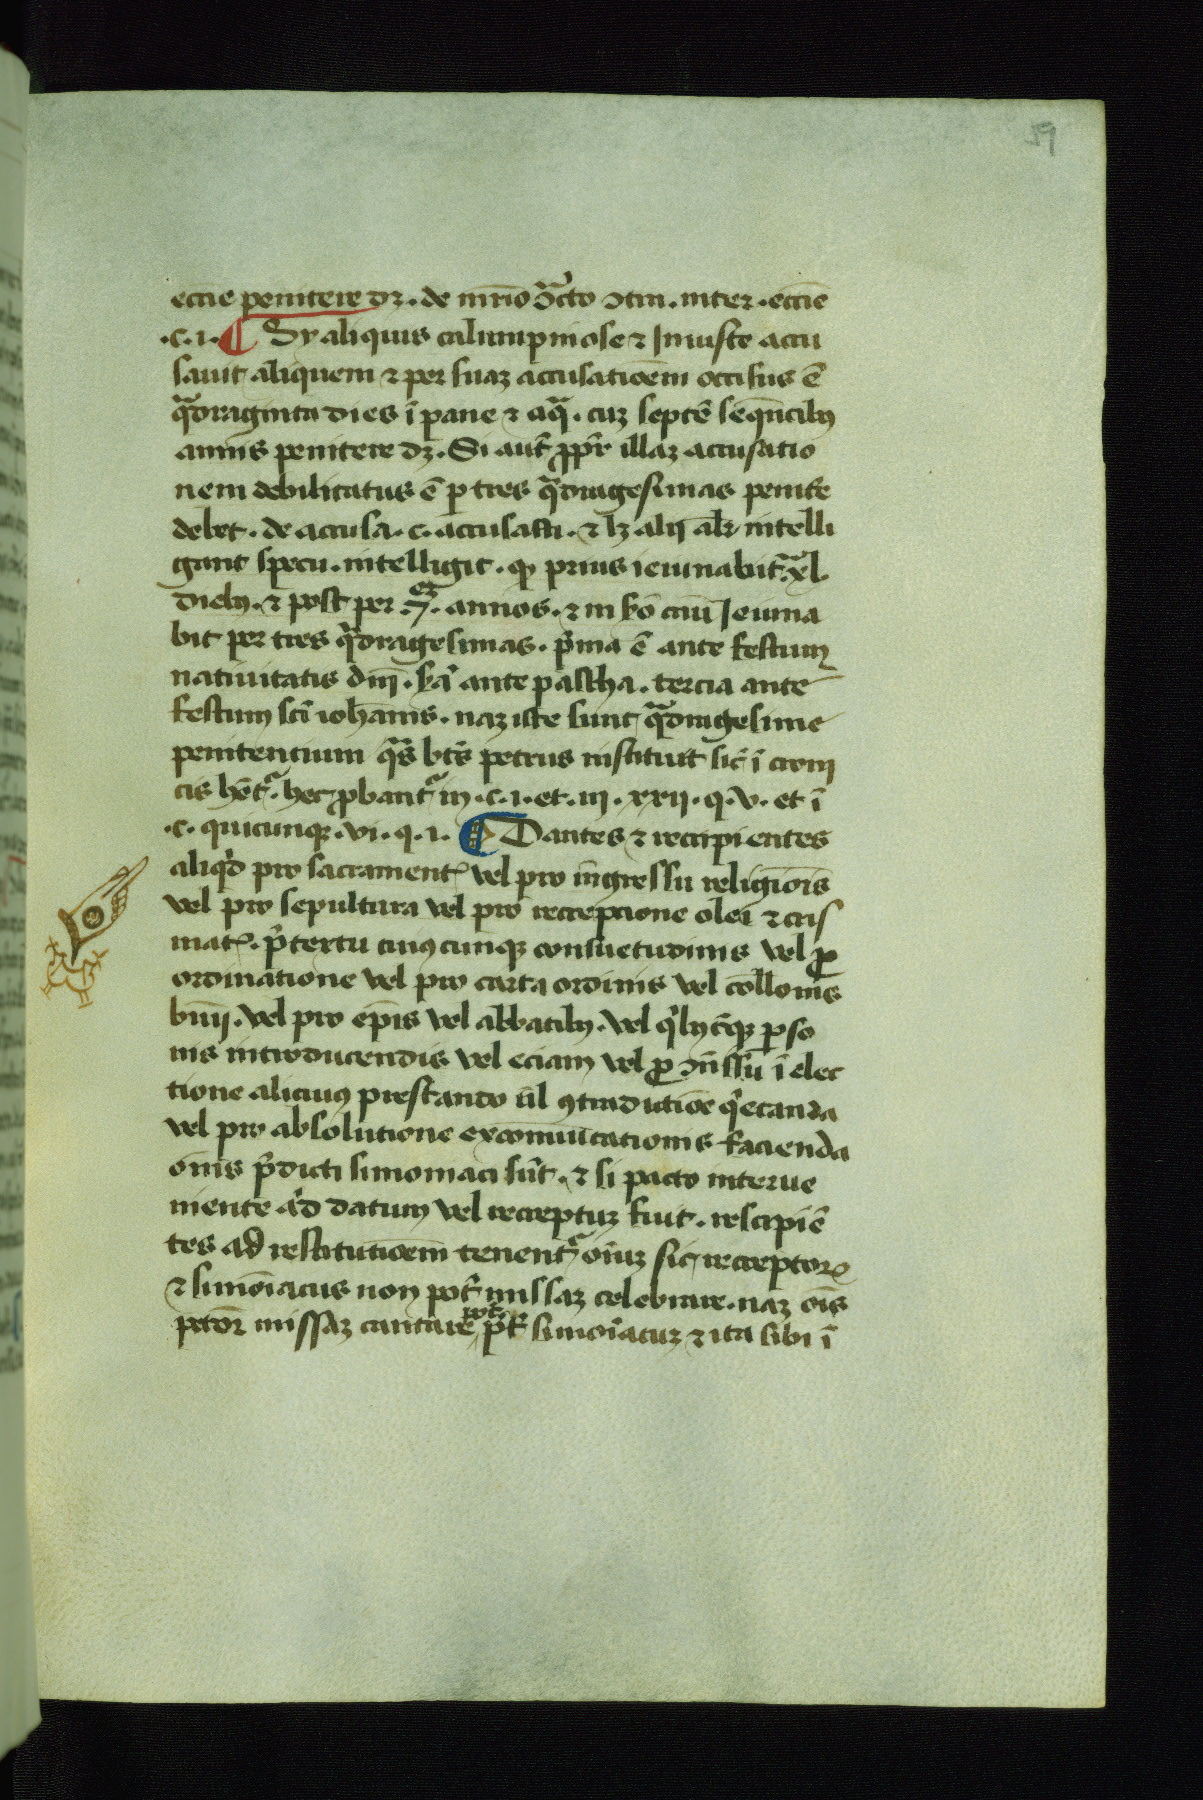 59
eccīe penitere dꝫ · de mrīo ꝯᵃcto ꝯtra · inter · eccīe
·c·i· ¶ Sy aliquis calumpniose ⁊ Iniuste accu
sauit aliquem ⁊ per suaꝫ accusatiōem occisus ē
qᵃdraginta dies ī pane ⁊ aqᵃ · cuꝫ septē seqūtibꝰ
annis penitere dꝫ · Si aut̄ ꝓpt̄ illaꝫ accusatio
nem debilitatus ē ꝑ tres qᵃdragesimas penite
debet · de accusa · c · accusasti · ⁊ lꝫ alij alr̄ intelli
gant specu · intelligit · qꝫ prius ieiunabit᷑ xl
diebꝰ · ⁊ post per ·7· annos · ⁊ in ſcō cāu Ieiuna
bit per tres qᵃdragesimas · pⁱma ē ante festum
natiuitatis dn̄i · ſcᵃ ante pascha · tercia ante
festum scī ioh̄annis · naꝫ iste sunt qᵃdragesime
penitentium qᵃs bt̄s petrus instituit sic̄ ī croni
cis hēt᷑ · hec ꝓbant᷑ in ·c·i· et · iij · xxij · q · v · et ī
·c· quicunqꝫ · vi · q · i · ¶ Dantes ⁊ recipientes
aliqⁱd pro sacrament᷑ vel pro īngressu religiōis
vel pro sepultura vel pro recepcione olei ⁊ cris
mat᷑ · p̄textu cuiꝰcunqꝫ consuetudinis vel ꝓ
ordinatione vel pro carta ordinis vel collōnis
bn̄ij · vel pro ep̄is vel abbatibꝰ · vel qⁱbꝰcūqꝫ ꝑso
nis introducendis vel eciam vel ꝓ ꝯn̄ssu ī elec
tione alicuiꝰ prestando ul̄ ꝯtradictiōe qⁱetanda
vel pro absolutione excomūicationis facienda
om̄s p̄dicti simoniaci sūt · ⁊ si pacto interue
niente aⁱd datum vel receptuꝫ fuit · rescipiē
tes ad restitutiōem tenent᷑ oīuꝫ sic receptoꝝ
⁊ simōiacus non pot̄ missaꝫ celebrare · naꝫ oīs
pctōr missaꝫ cantare pot̄ p̄t̄ simōiacuꝫ ⁊ ita sibi ī